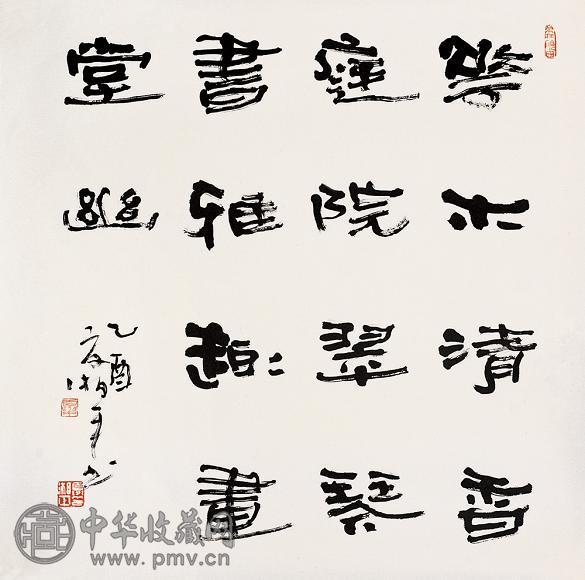 花木清香
庭院翠琴
書雅趣畫
堂幽
乙酉
中华收藏网
www.pmv.cn